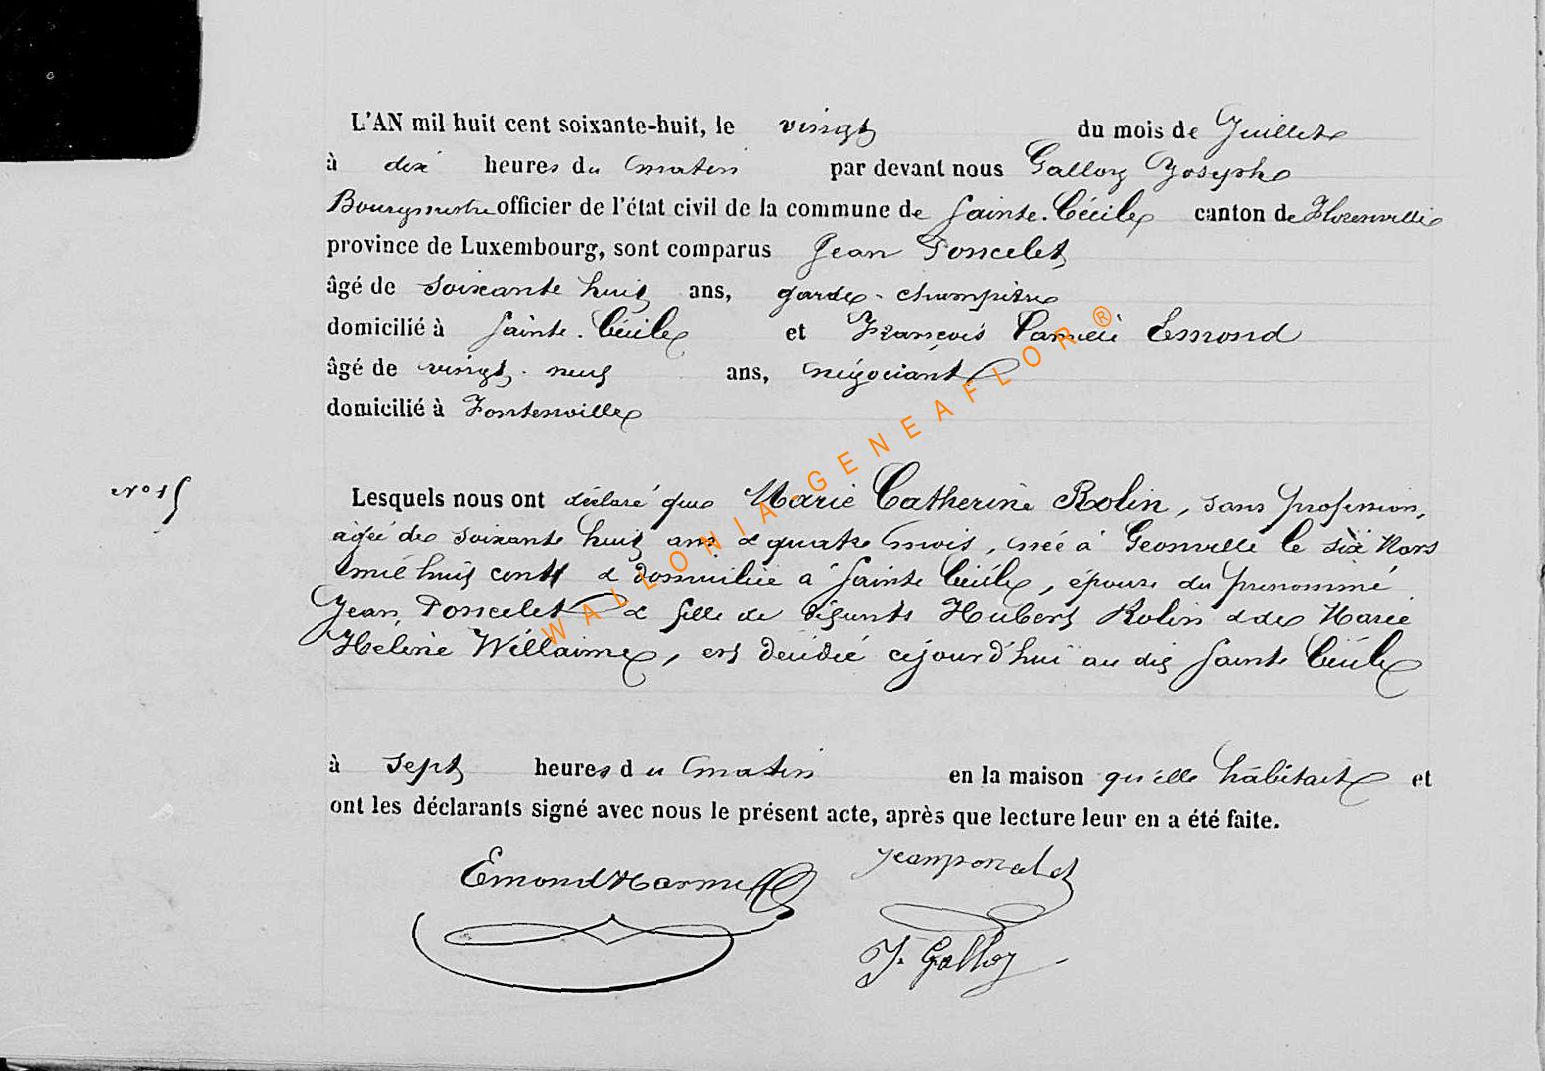 L'AN mil huit cent soixante-huit, le vingt du mois de Juillet
à dix heures du matin par devant nous Galloy Joseph
Bourgmestre officier de l'état civil de la commune de Sainte-Cécile canton de Florenville
province de Luxembourg, sont comparus Jean Poncelet
âgé de soixante huit ans, garde-champêtre
domicilié à Sainte-Cécile et François Camille Emond
âgé de vingt-neuf ans, négociant
domicilié à Fontenoille
N° 15
Lesquels nous ont déclaré que Marie Catherine Rolin, sans profession,
agée de soixante huit ans & quatre mois, née à le six Mars
mil huit cent & domiciliée à Sainte Cécile, épouse du prénommé
Jean Poncelet & fille de défunts Hubert Rolin & de Marie
Helène Willaime, est décédée cejourd'hui au dit Sainte Cécile
à sept heures du matin en la maison qu'elle habitait et
ont les déclarants signé avec nous le présent acte, après que lecture leur en a été faite.
Emond jeanponcelet
J. Galloy
WALLONIA-GENEAFLOR ®